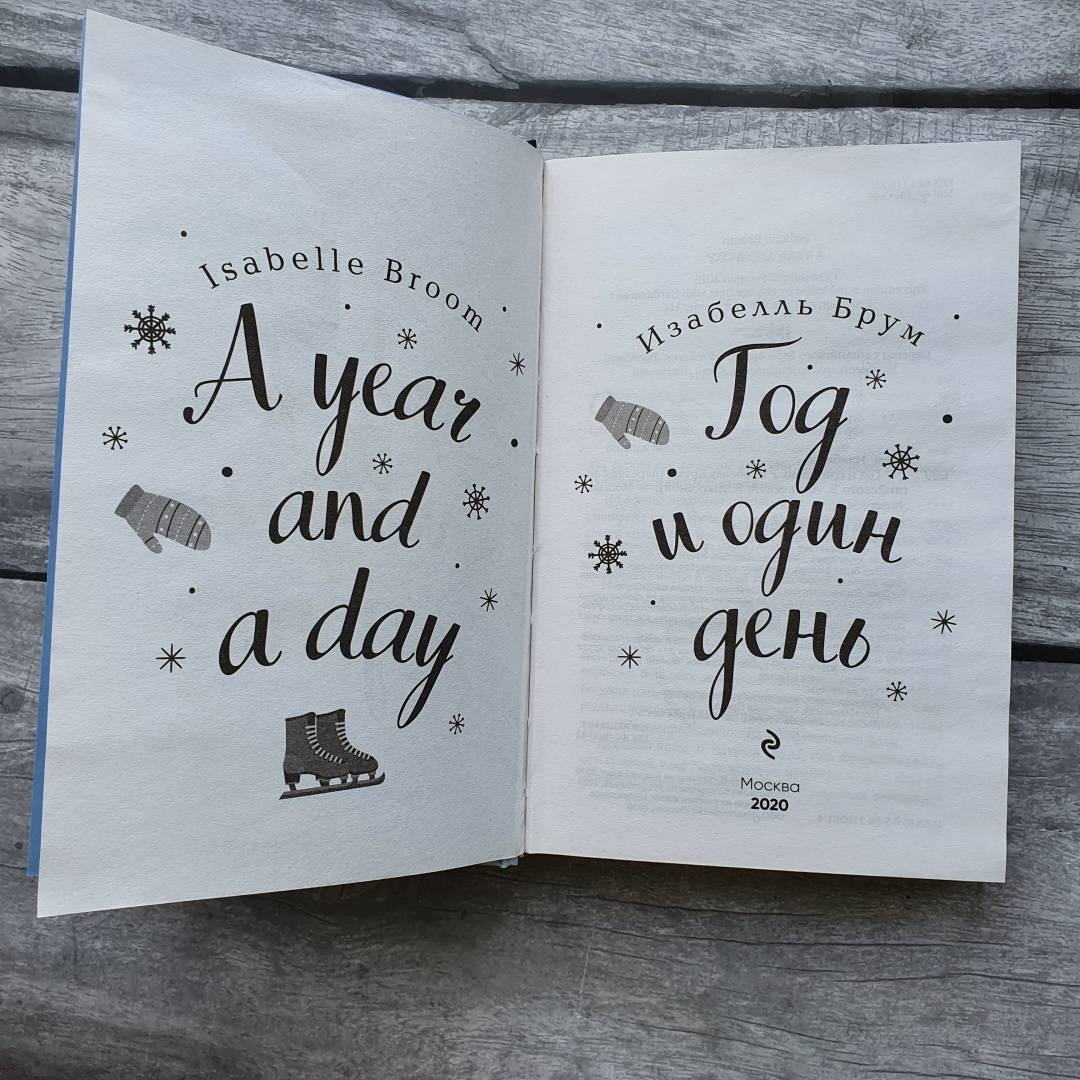 Isabelle Broom
A year
and
a day
Изабелль Брум
Год
и один
день
Москва
2020